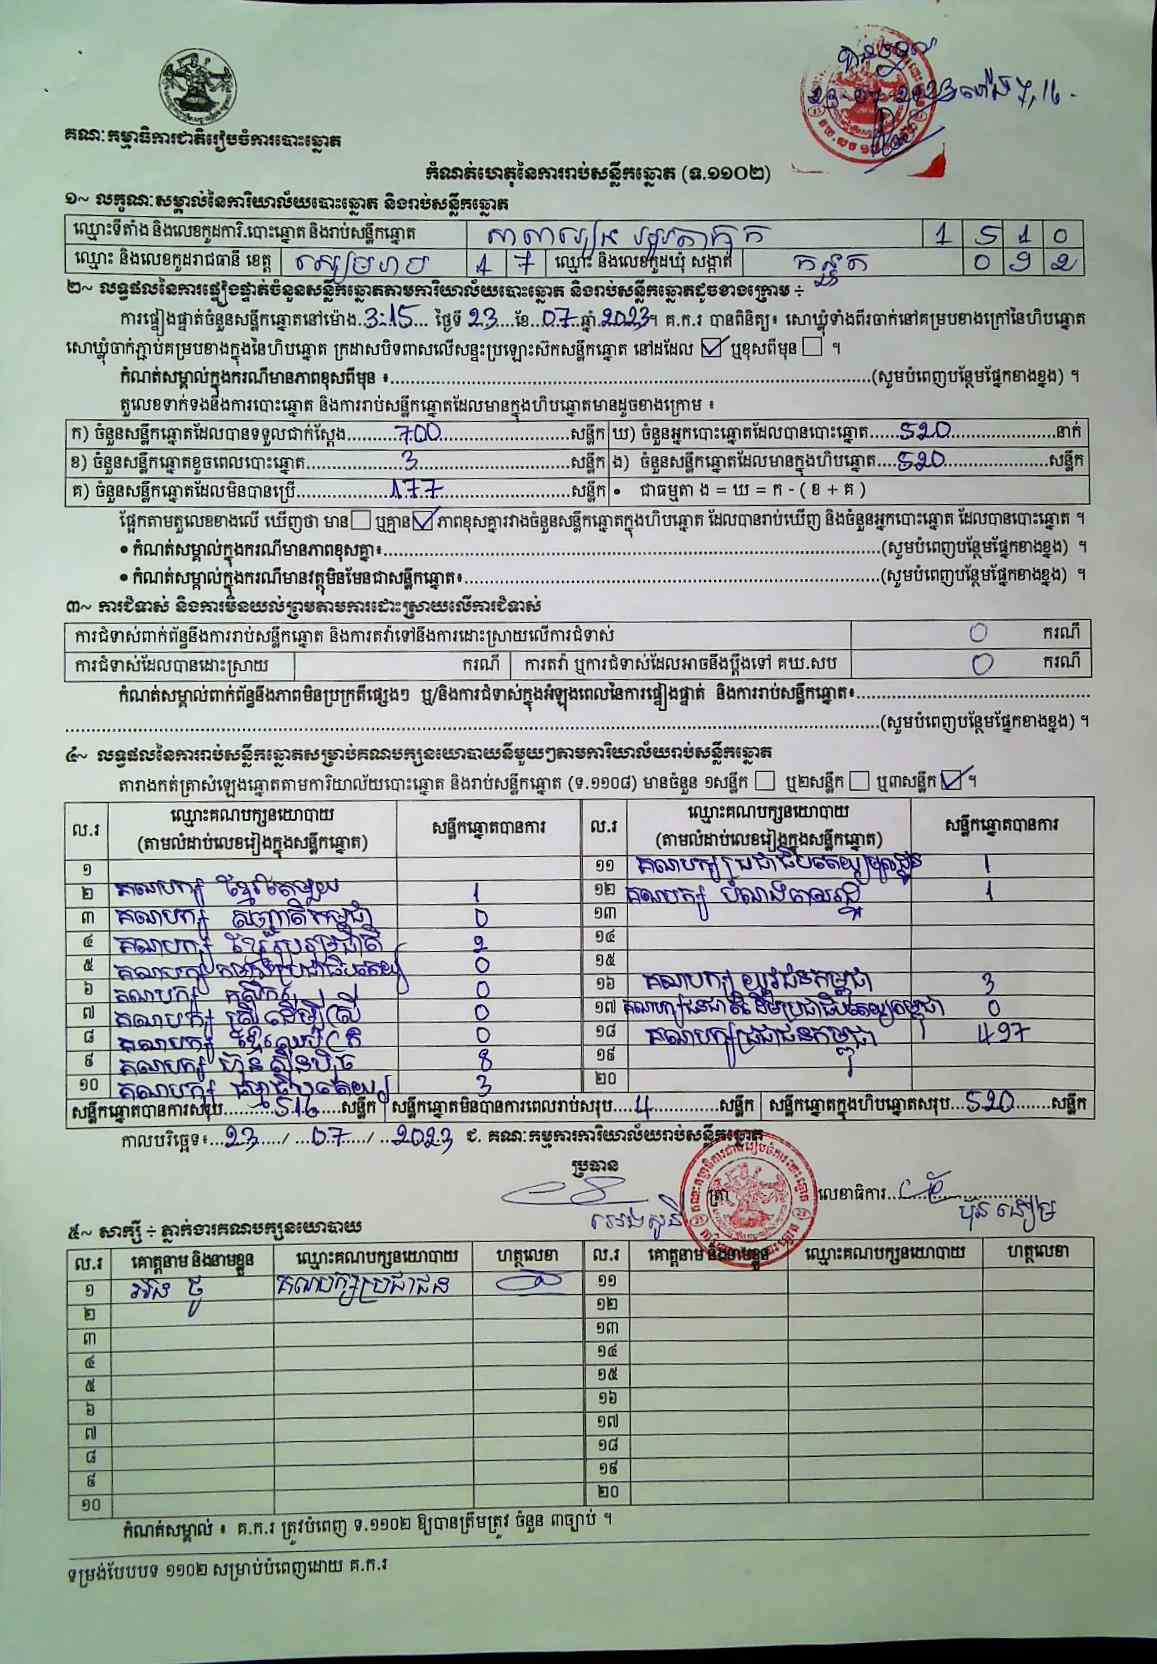 បានទទួល
23 07 2023 ម៉ោង 7,16
គណៈកម្មាធិការជាតិរៀបចំការបោះឆ្នោត
កំណត់ហេតុនៃការរាប់សន្លឹកឆ្នោត (ទ.១១០២)
១~ លក្ខណៈសម្គាល់នៃការិយាល័យបោះឆ្នោត និងរាប់សន្លឹកឆ្នោត
ឈ្មោះទីតាំង និងលេខកូដការិ.បោះឆ្នោត និងរាប់សន្លឹកឆ្នោត សាលារៀន 1 5 1 0
ឈ្មោះ និងលេខកូដរាជធានី ខេត្ត សៀមរាប 1 7 ឈ្មោះ និងលេខកូដឃុំ សង្កាត់ កន្ទួត 0 9 2
២~ លទ្ធផលនៃការផ្ទៀងផ្ទាត់ចំនួនសន្លឹកឆ្នោតតាមការិយាល័យបោះឆ្នោត និងរាប់សន្លឹកឆ្នោតដូចខាងក្រោម ÷
ការផ្ទៀងផ្ទាត់ចំនួនសន្លឹកឆ្នោតនៅម៉ោង.3:15... ថ្ងៃទី 23...ខែ..07..ឆ្នាំ.2023។ គ.ក.រ បានពិនិត្យ៖ សោឃ្លុំទាំងពីរចាក់នៅគម្របខាងក្រៅនៃហិបឆ្នោត
សោឃ្លុំចាក់ភ្ជាប់គម្របខាងក្នុងនៃហិបឆ្នោត ក្រដាសបិទពាសលើសន្ទះប្រឡោះស៊កសន្លឹកឆ្នោត នៅដដែល ☑ ឬខុសពីមុន ☐ ។
កំណត់សម្គាល់ក្នុងករណីមានភាពខុសពីមុន ៖...(សូមបំពេញបន្ថែមផ្នែកខាងខ្នង) ។
តួលេខទាក់ទងនឹងការបោះឆ្នោត និងការរាប់សន្លឹកឆ្នោតដែលមានក្នុងហិបឆ្នោតមានដូចខាងក្រោម ៖
ក) ចំនួនសន្លឹកឆ្នោតដែលបានទទួលជាក់ស្តែង...700...សន្លឹក ឃ) ចំនួនអ្នកបោះឆ្នោតដែលបានបោះឆ្នោត...520...នាក់
ខ) ចំនួនសន្លឹកឆ្នោតខូចពេលបោះឆ្នោត...3...សន្លឹក ង) ចំនួនសន្លឹកឆ្នោតដែលមានក្នុងហិបឆ្នោត...520...សន្លឹក
គ) ចំនួនសន្លឹកឆ្នោតដែលមិនបានប្រើ...177...សន្លឹក • ជាធម្មតា ង = ឃ = ក - ( ខ + គ )
ផ្អែកតាមតួលេខខាងលើ ឃើញថា មាន ☐ ឬគ្មាន ☑ ភាពខុសគ្នារវាងចំនួនសន្លឹកឆ្នោតក្នុងហិបឆ្នោត ដែលបានរាប់ឃើញ និងចំនួនអ្នកបោះឆ្នោត ដែលបានបោះឆ្នោត ។
• កំណត់សម្គាល់ក្នុងករណីមានភាពខុសគ្នា៖...(សូមបំពេញបន្ថែមផ្នែកខាងខ្នង) ។
• កំណត់សម្គាល់ក្នុងករណីមានវត្ថុមិនមែនជាសន្លឹកឆ្នោត៖...(សូមបំពេញបន្ថែមផ្នែកខាងខ្នង) ។
៣~ ការជំទាស់ និងការមិនយល់ព្រមតាមការដោះស្រាយលើការជំទាស់
ការជំទាស់ពាក់ព័ន្ធនឹងការរាប់សន្លឹកឆ្នោត និងការតវ៉ាទៅនឹងការដោះស្រាយលើការជំទាស់ 0 ករណី
ការជំទាស់ដែលបានដោះស្រាយ ករណី ការតវ៉ា ឬការជំទាស់ដែលអាចនឹងប្តឹងទៅ គឃ.សប 0 ករណី
កំណត់សម្គាល់ពាក់ព័ន្ធនឹងភាពមិនប្រក្រតីផ្សេងៗ ឬ/និងការជំទាស់ក្នុងអំឡុងពេលនៃការផ្ទៀងផ្ទាត់ និងការរាប់សន្លឹកឆ្នោត៖...
...(សូមបំពេញបន្ថែមផ្នែកខាងខ្នង) ។
៤~ លទ្ធផលនៃការរាប់សន្លឹកឆ្នោតសម្រាប់គណបក្សនយោបាយនីមួយៗតាមការិយាល័យរាប់សន្លឹកឆ្នោត
តារាងកត់ត្រាសំឡេងឆ្នោតតាមការិយាល័យបោះឆ្នោត និងរាប់សន្លឹកឆ្នោត (ទ.១១០៨) មានចំនួន ១សន្លឹក ☐ ឬ២សន្លឹក ☐ ឬ៣សន្លឹក ☑ ។
ល.រ ឈ្មោះគណបក្សនយោបាយ (តាមលំដាប់លេខរៀងក្នុងសន្លឹកឆ្នោត) សន្លឹកឆ្នោតបានការ ល.រ ឈ្មោះគណបក្សនយោបាយ (តាមលំដាប់លេខរៀងក្នុងសន្លឹកឆ្នោត) សន្លឹកឆ្នោតបានការ
១ ១១ គណបក្សប្រជាធិបតេយ្យមូលដ្ឋាន 1
២ គណបក្ស ខ្មែរតែមួយ 1 ១២ គណបក្ស បំណងពលរដ្ឋ 1
៣ គណបក្ស សញ្ជាតិកម្ពុជា 0 ១៣
៤ គណបក្ស ខ្មែររួបរួមជាតិ 2 ១៤
៥ គណបក្ស កម្លាំងប្រជាធិបតេយ្យ 0 ១៥
៦ គណបក្ស កសិករ 0 ១៦ គណបក្ស យុវជនកម្ពុជា 3
៧ គណបក្ស ស្រ្តីដើម្បីស្រ្តី 0 ១៧ គណបក្សជនជាតិដើមប្រជាធិបតេយ្យកម្ពុជា 0
៨ គណបក្ស ខ្មែរអភិរក្ស 0 ១៨ គណបក្សប្រជាជនកម្ពុជា 497
៩ គណបក្ស ហ៊្វុនស៊ិនប៉ិច 8 ១៩
១០ គណបក្ស ធម្មាធិបតេយ្យ 3 ២០
សន្លឹកឆ្នោតបានការសរុប...516...សន្លឹក សន្លឹកឆ្នោតមិនបានការពេលរាប់សរុប....4...សន្លឹក សន្លឹកឆ្នោតក្នុងហិបឆ្នោតសរុប...520...សន្លឹក
កាលបរិច្ឆេទ៖...23.../...07.../...2023 ជ. គណៈកម្មការការិយាល័យរាប់សន្លឹកឆ្នោត
ប្រធាន
ត្រា លេខាធិការ
៥~ សាក្សី ÷ ភ្នាក់ងារគណបក្សនយោបាយ
ល.រ គោត្តនាម និងនាមខ្លួន ឈ្មោះគណបក្សនយោបាយ ហត្ថលេខា ល.រ គោត្តនាម និងនាមខ្លួន ឈ្មោះគណបក្សនយោបាយ ហត្ថលេខា
១ គណបក្សប្រជាជន ១១
២ ១២
៣ ១៣
៤ ១៤
៥ ១៥
៦ ១៦
៧ ១៧
៨ ១៨
៩ ១៩
១០ ២០
កំណត់សម្គាល់ ៖ គ.ក.រ ត្រូវបំពេញ ទ.១១០២ ឱ្យបានត្រឹមត្រូវ ចំនួន ៣ច្បាប់ ។
ទម្រង់បែបបទ ១១០២ សម្រាប់បំពេញដោយ គ.ក.រ